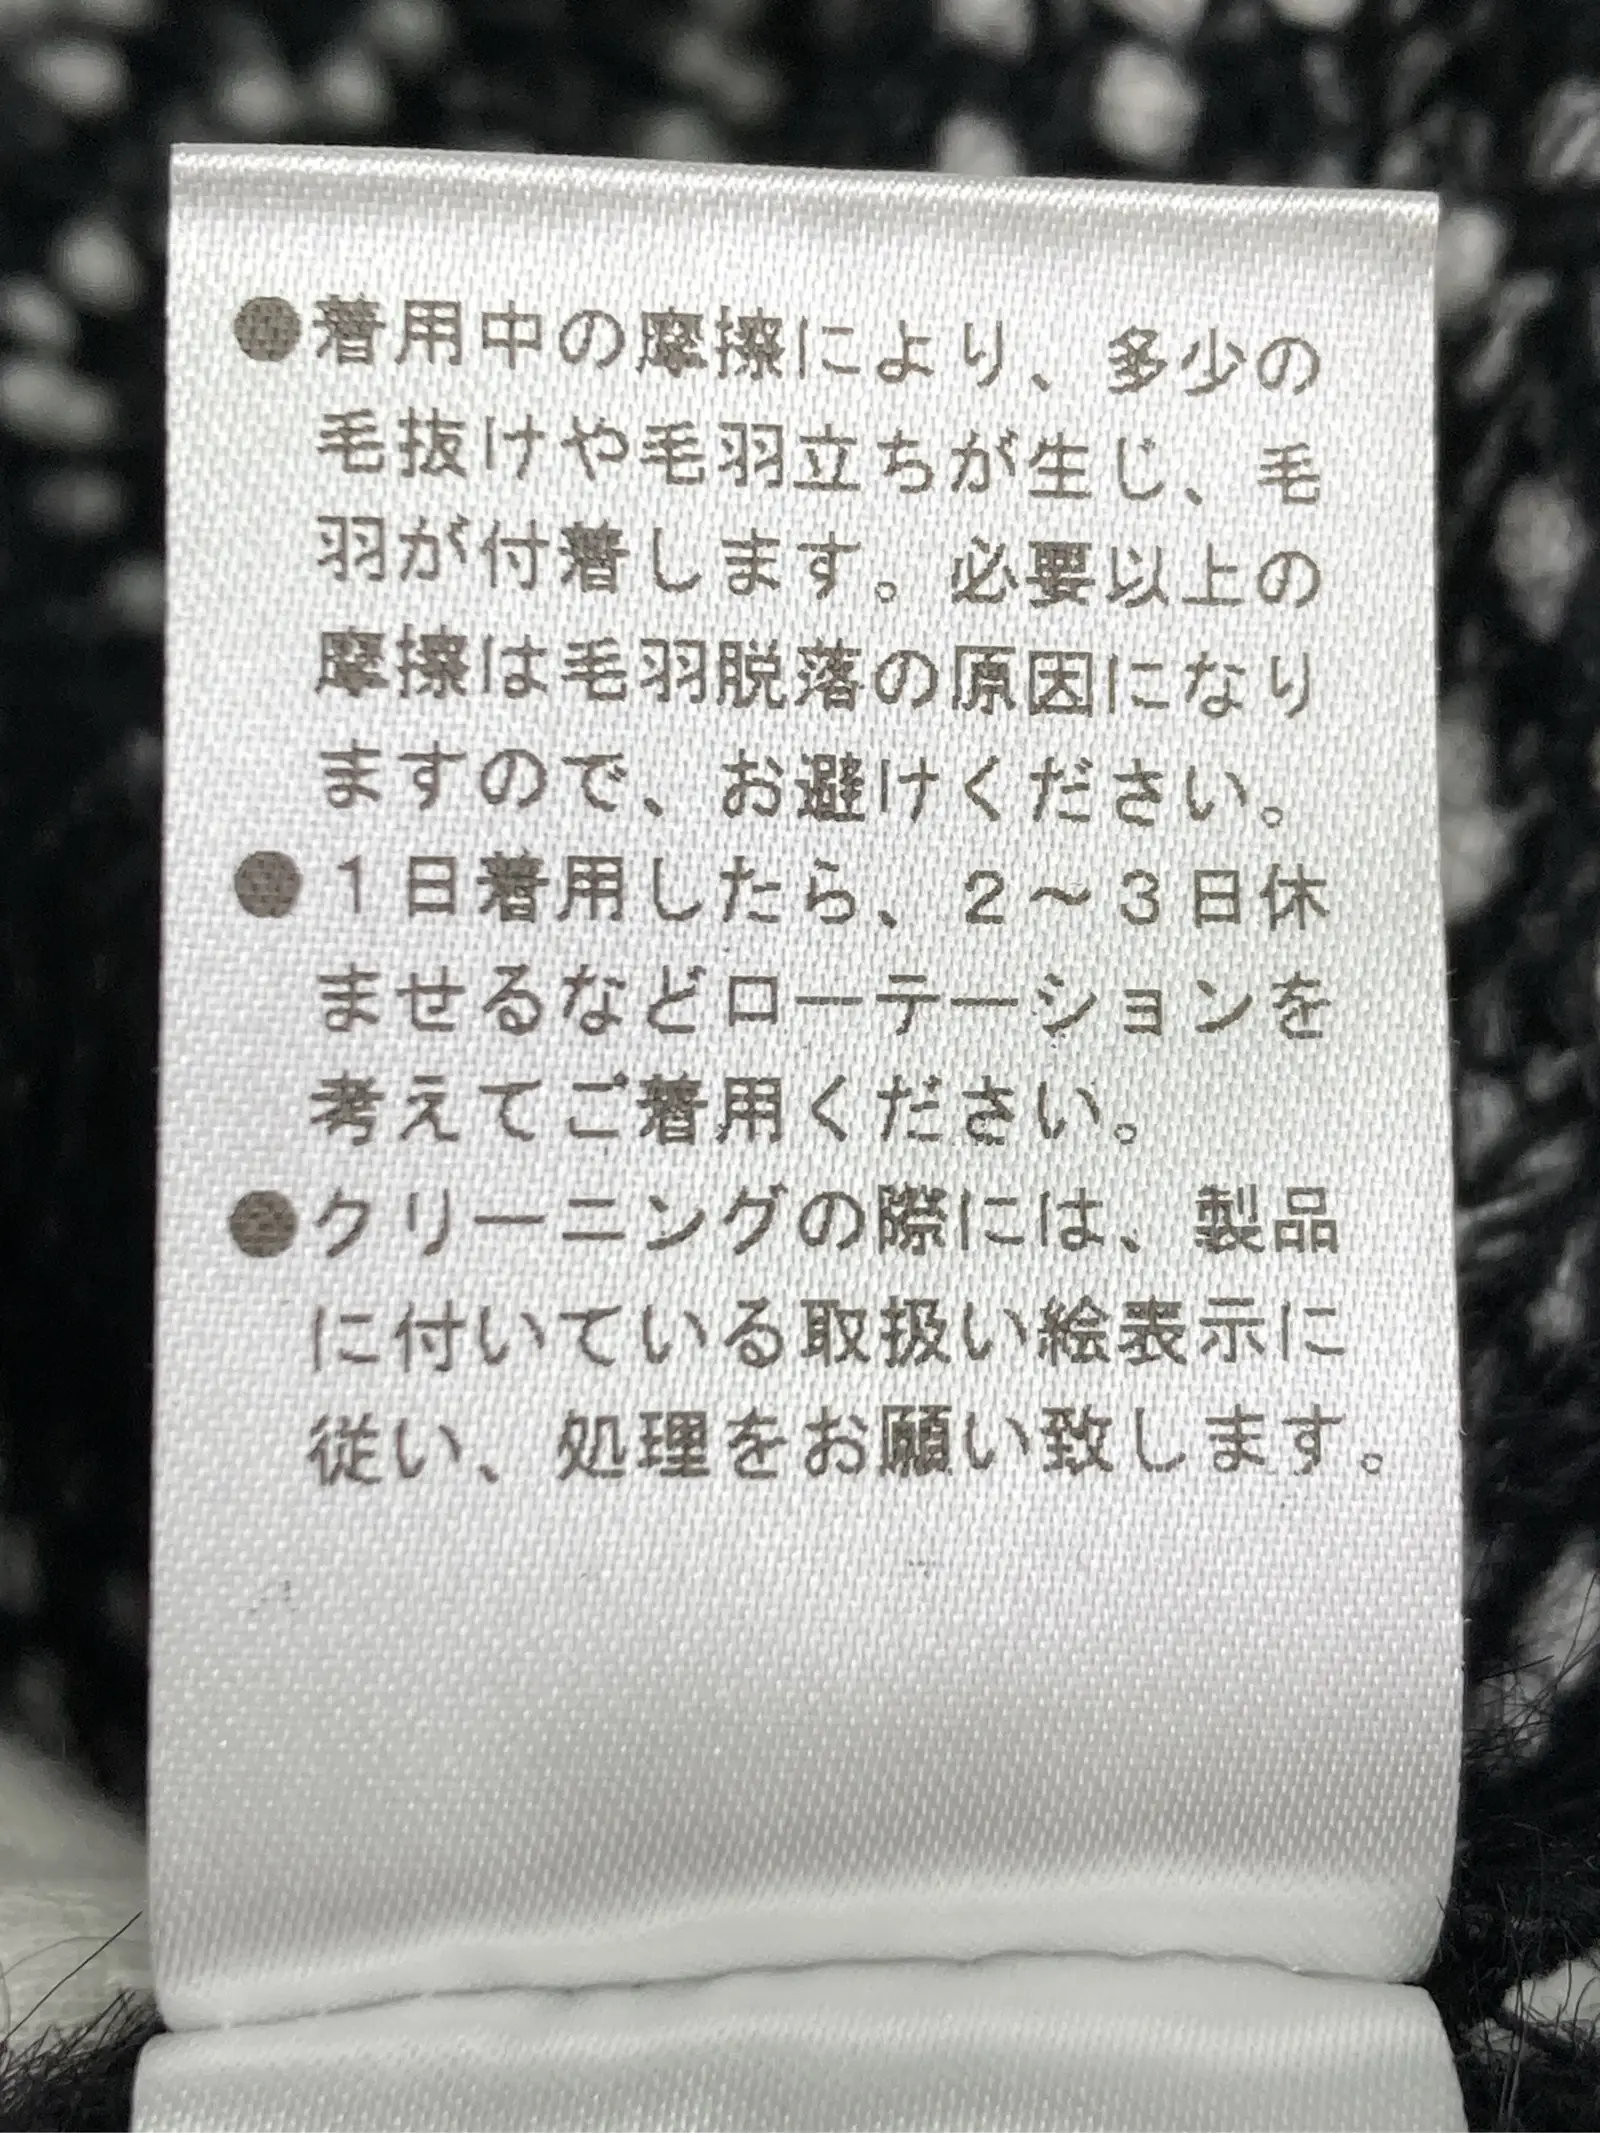 ●着用中の摩擦により、多少の
毛抜けや毛羽立ちが生じ、毛
羽が付着します。必要以上の
摩擦は毛羽脱落の原因になり
ますので、お避けください。
●１日着用したら、２～３日休
ませるなどローテーションを
考えてご着用ください。
●クリーニングの際には、製品
に付いている取扱い絵表示に
従い、処理をお願い致します。